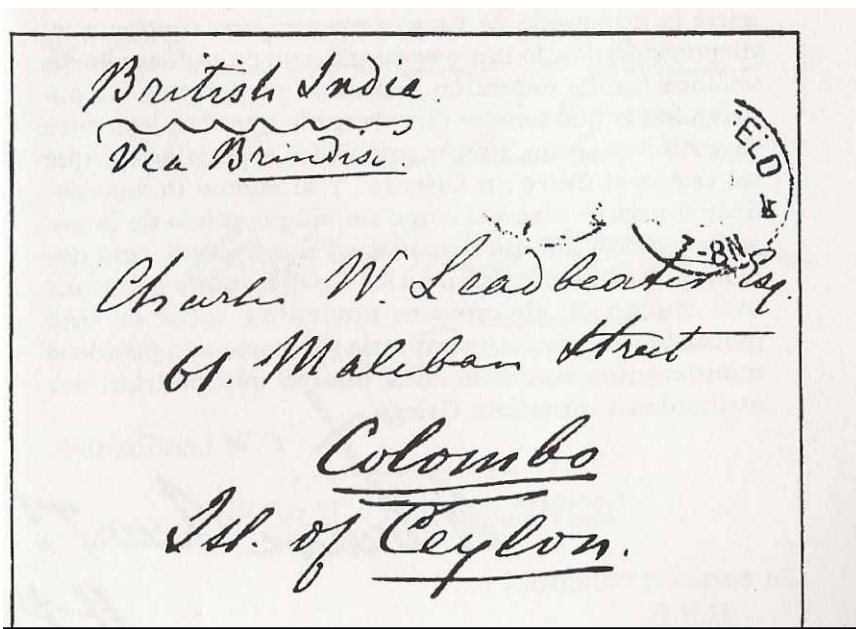 British India
Via Brindisi.
ELD
Charles W Leadbeater Esq.
61 Maliban Street
Colombo
Isl. of Ceylon.